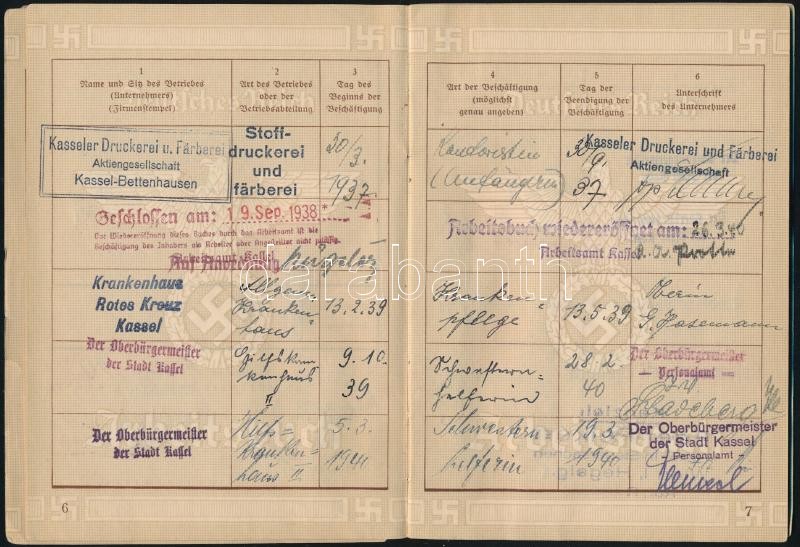 1
Name und Sitz des Betriebes
(Unternehmers)
(Firmenstempel)
2
Art des Betriebes
oder der
Betriebsabteilung
3
Tag des
Beginns der
Beschäftigung
Kasseler Druckerei u. Färberei
Aktiengesellschaft
Kassel-Bettenhausen
Stoff-
druckerei
und
färberei
30/3.
1937
Geschlossen am: 19. Sep. 1938
Das Wiedereröffnung dieses Buches durch das Arbeitsamt ist die
Beschäftigung des Inhabers als Arbeiter oder Angestellter nicht zulässig.
Arbeitsamt Kassel
Krankenhaus
Rotes Kreuz
Kassel
Allgem.
Kranken
haus
13.2.39
Der Oberbürgermeister
der Stadt Kassel
Hilfskran
kenhaus
II
9.10.
39
Der Oberbürgermeister
der Stadt Kassel
Hilfs=
kranken=
haus II
5.3.
1940
6
4
Art der Beschäftigung
(möglichst
genau angeben)
5
Tag der
Beendigung der
Beschäftigung
6
Unterschrift
des Unternehmers
Kontoristin
(Anfängerin)
30/9.
37
Kasseler Druckerei und Färberei
Aktiengesellschaft
Arbeitsbuch wiedereröffnet am: 26.3.40
Arbeitsamt Kassel
Kranken
pflege
13.5.39
Oberin
G. Hasemann
Schwestern=
helferin
28.2.
40
Der Oberbürgermeister
— Personalamt —
Schwestern
helferin
19.3.
1940
Der Oberbürgermeister
der Stadt Kassel
Personalamt
7
darabanth